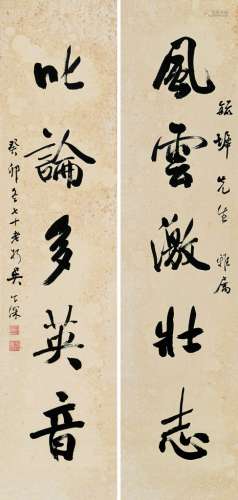 風雲激壯志
先生雅屬
吐論多英音
癸卯冬七十老朽吳